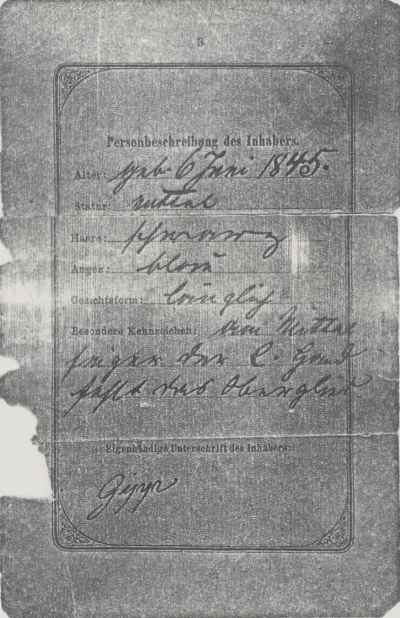 3
Personbeschreibung des Inhabers.
Alter: geb. 6 Juni 1845.
Statur: mittel
Haare: schwarz
Augen: blau
Gesichtsform: länglich
Besondere Kennzeichen: Vom Mittel
finger der l. Hand
fehlt das Oberglied
Eigenhändige Unterschrift des Inhabers: